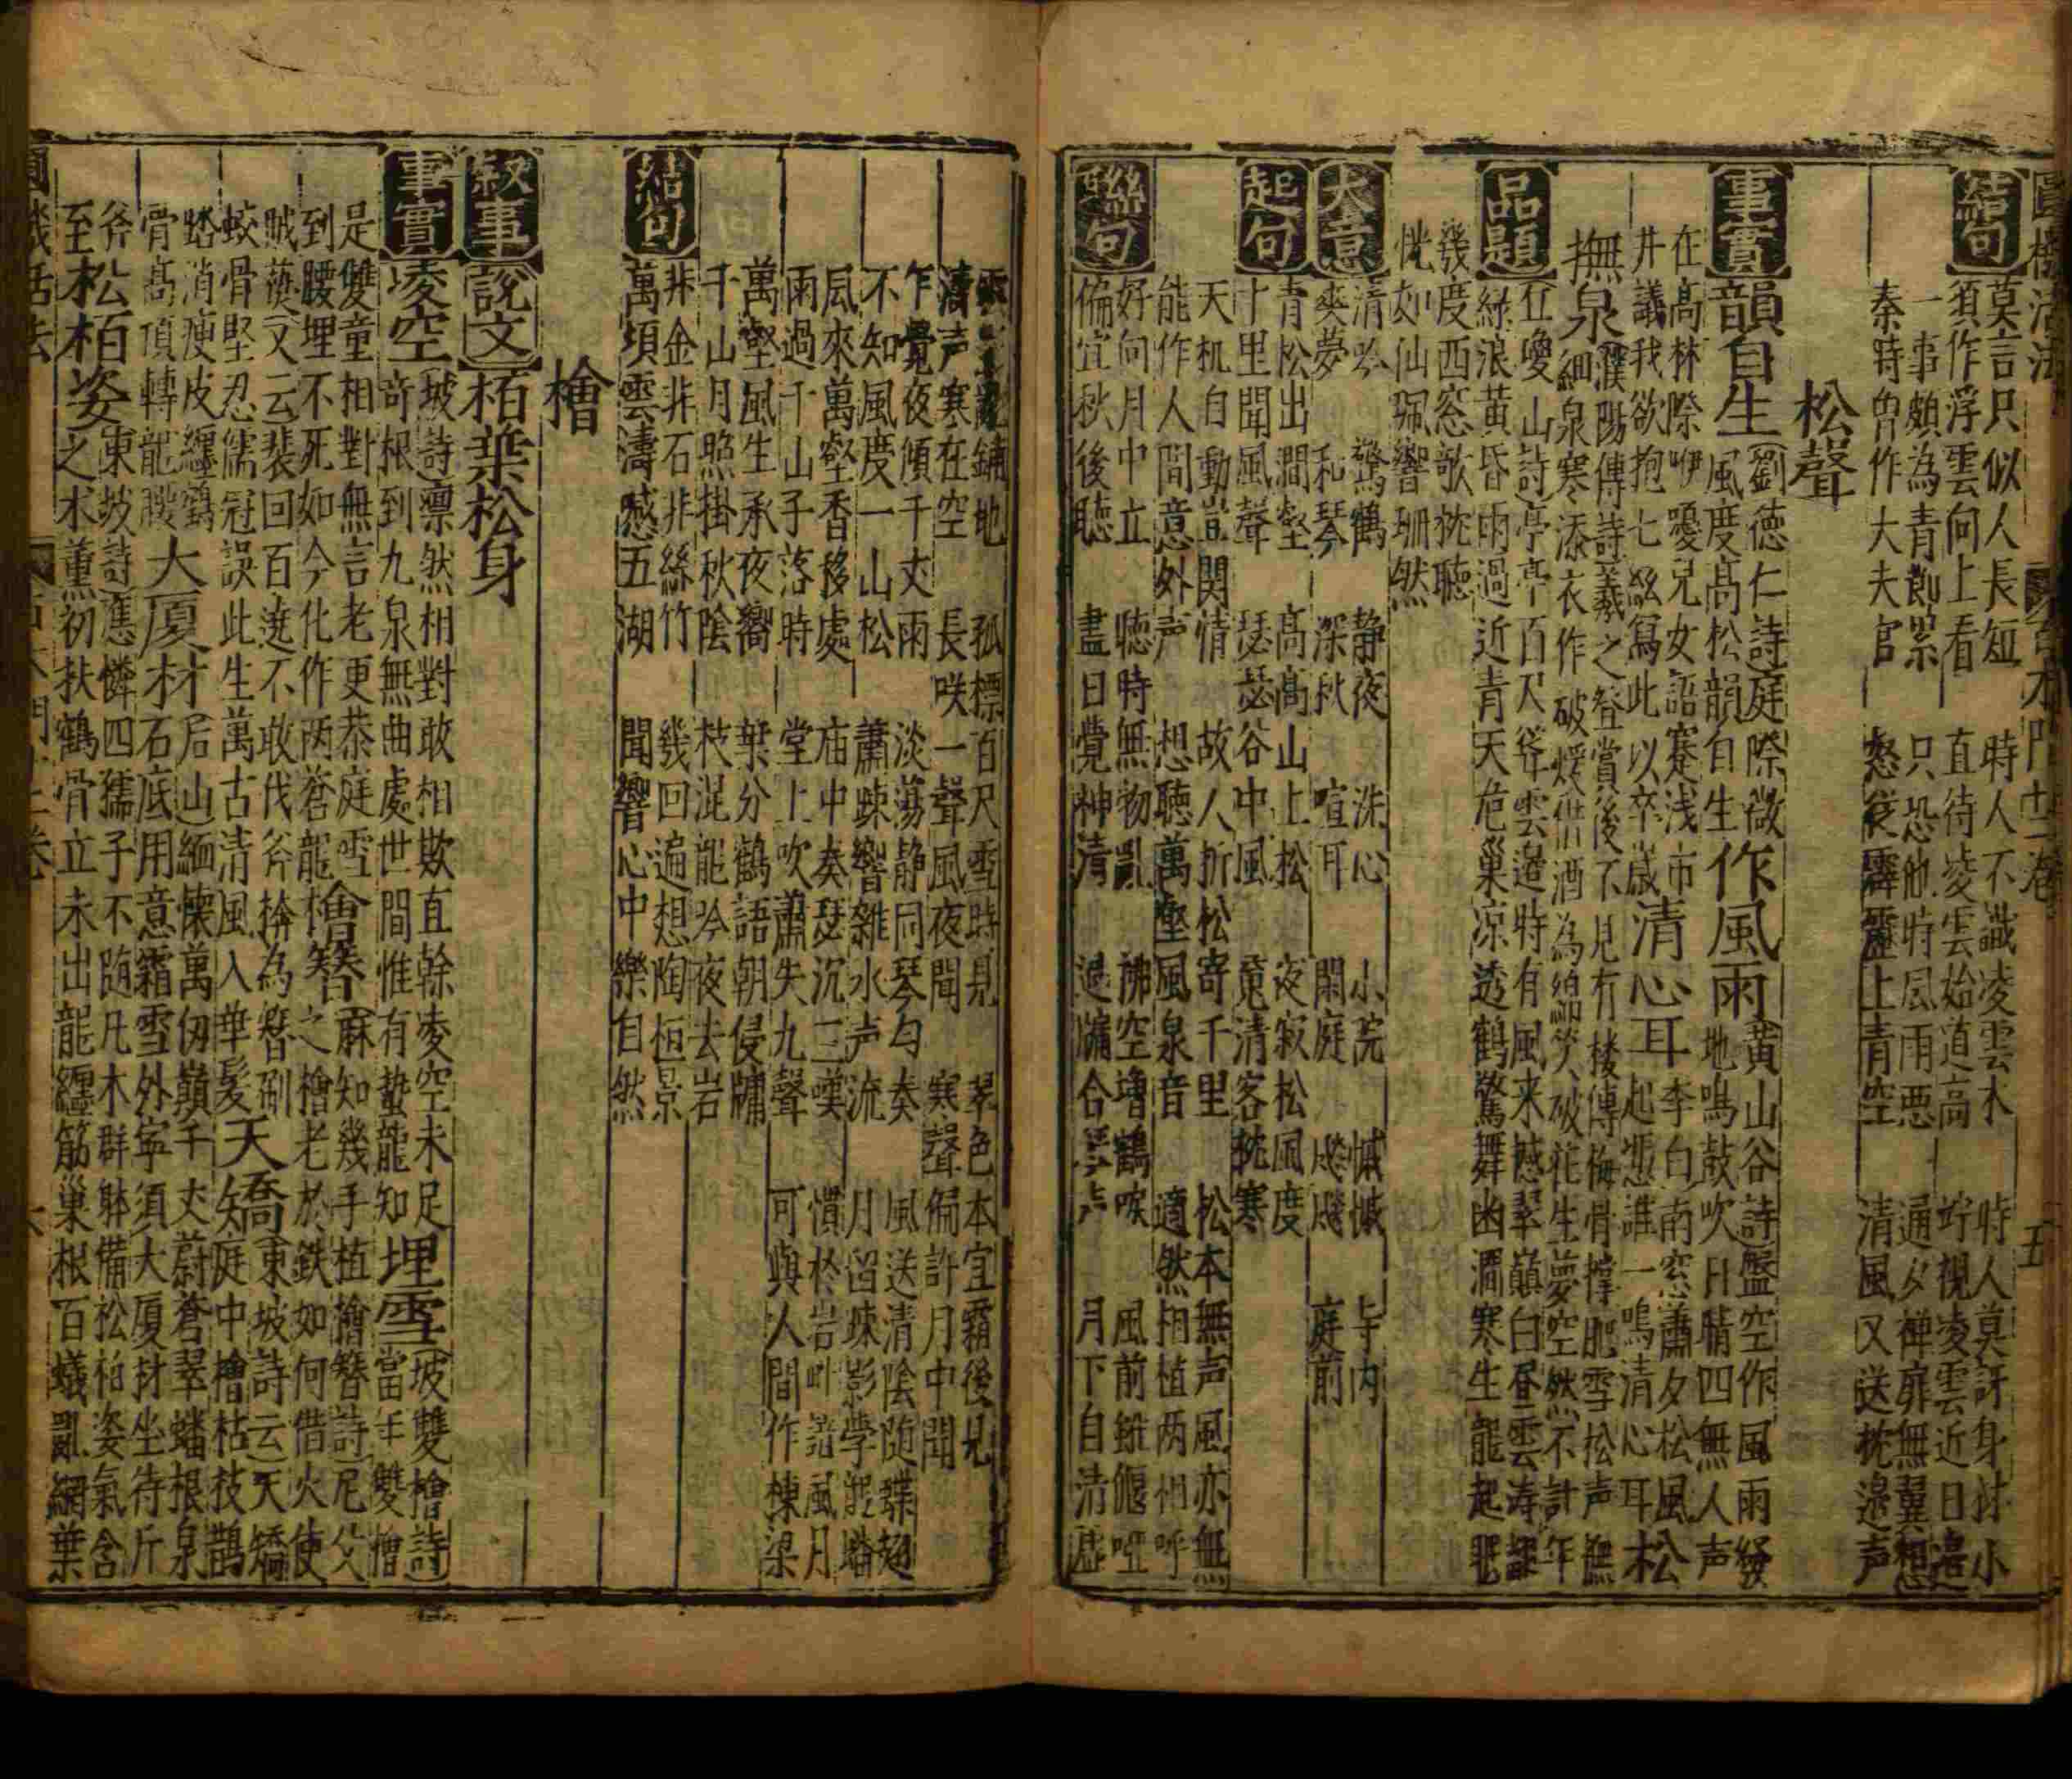 圓機活法
木門十二卷
五
結句
莫言只似人長短
時人不識凌雲木
時人莫訝身材小
須作浮雲向上看
直待凌雲始道高
竚視凌雲近日邊
一事頗為青
只恐他時風雨惡
通夕禅扉無翼想
秦時曽作大夫官
怒從霹靂上青空
清風又送枕邉声
松聲
事實
韻自生
劉徳仁詩庭際微
風度高松韻自生
作風雨
黃山谷詩盤空作風雨發
地鳴鼓吹日晴四無人声
在高林際咿嚘兒女語蹇浅市
李白南窓蕭夕松風
井議我欲抱七絃寫此以卒歲
清心耳
起慿誰一鳴清心耳
松
撫泉
濮陽傳詩羲之登賞後不見有棲傳梅骨撑肥雪松声無
細泉寒添衣作破煖借酒為綿笑破花生夢空然不計年
品題
丘嚘山詩亭亭百尺聳雲邉時有風来撼翠巔白昼雲涛
綠浪黃昏雨過近青天危巢凉透鶴驚舞幽澗寒生龍起眠
幾度西窓欹枕聴
恍如仙珮響珊然
大意
清吟
驚鶴
静夜
洙心
小院
慽慽
寺内
爽夢
和琴
深秋
喧耳
閑庭
颼颼
庭前
起句
青松出澗壑
高高山上松
夜寂松風度
十里聞風聲
瑟瑟谷中風
覓清客枕寒
天机自動豈関情
故人折松寄千里
松本無声風亦無
能作人間意外声
想聴萬壑風泉音
適然相植两相呼
聯句
好向月中立
聴時無物亂
拂空增鶴唳
風前雖偃啞
偏宜秋後聴
盡日覺神清
過牖合琴声
月下自清虛
鋪地
孤標百尺雪時見
翠色本宜霜後見
濤声寒在空
長咲一聲風夜聞
寒聲偏許月中聞
乍覺夜傾千丈雨
淡蕩静同琴勻奏
風送清陰随蝶翅
不知風度一山松
蕭踈響雜水声流
月留踈影學龍蟠
風來萬壑香移處
庙中奏瑟沉三嘆
慣於岩畔諳風月
雨過千山子落時
堂上吹蕭失九聲
可與人間作棟梁
萬壑風生承夜響
葉分鶴語朝侵牖
千山月照掛秋陰
枝混龍吟夜去岩
結句
非金非石非絲竹
幾回遍想陶桓景
萬頃雲濤撼五湖
聞響心中樂自然
檜
敘事
說文
栢葉松身
事實
凌空
坡詩凛然相對敢相欺直幹凌空未足
竒根到九泉無曲處世間惟有蟄龍知
埋雪
坡雙檜詩
當年雙檜
是雙童相對無言老更恭庭雪
到腰埋不死如今化作两蒼龍
檜簪
麻知幾手植檜簪詩尼父
之檜老於鉄如何借火使
賊爇又云裴回百遶不敢伐斧捨為簪劚
蛟骨堅忍儒冠誤此生萬古清風入華髪
天矯
東坡詩云天矯
庭中檜枯枝鵲
踏消瘦皮纏鶴
骨高頂轉龍腰
大厦材
君山緬懐萬仭巔千丈蔚蒼翠蟠根泉
石底用意霜雪外寜須大厦材坐待斤
斧
東坡詩應憐四孺子不随凡木群躰備松柏姿氣含
至
松栢姿
之术薫初扶鶴骨立未出龍纏筋巢根百蟻亂網葉
圓機活法
木門十二卷
六